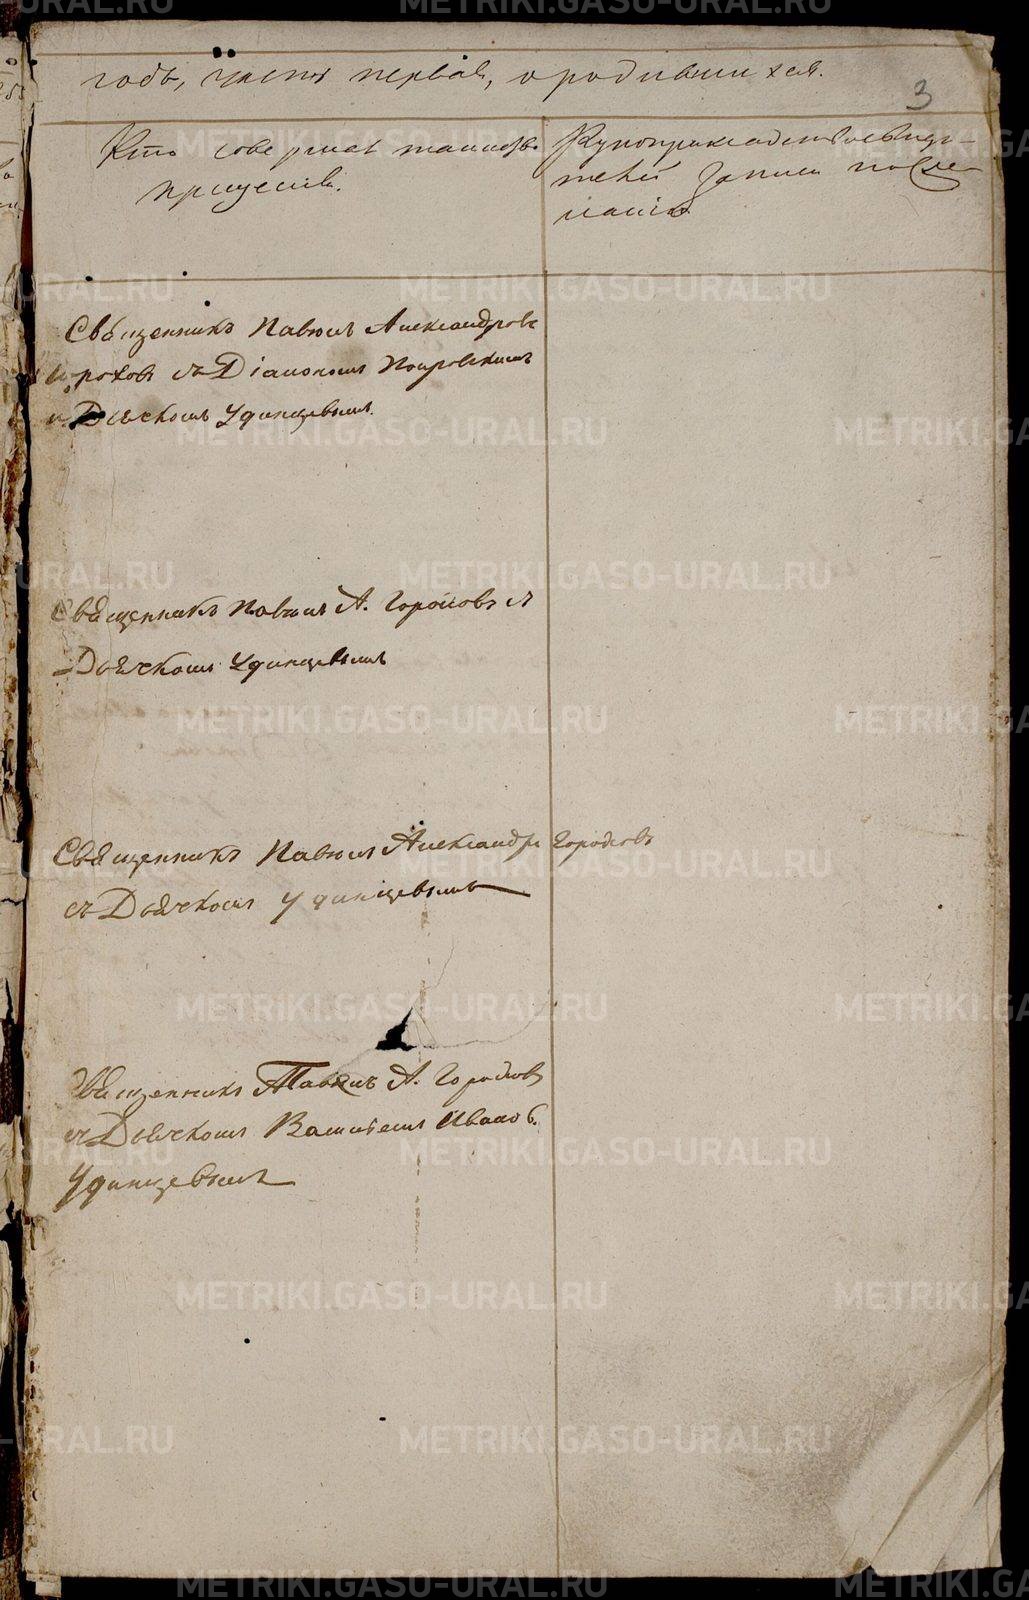 годъ, часть первая, о родившихся.
3
Кто совершалъ таинство
крещенія.
Рукоприкладство свидѣ-
телей записи по же-
ланію
Священникъ Павелъ Александровъ
съ Діакономъ Покровскимъ
и Дьячкомъ Удинцевымъ.
Священникъ Павелъ А. Городковъ съ
Дьячкомъ Удинцевымъ
Священникъ Павелъ Александръ Городковъ
съ Дьячкомъ Удинцевымъ
Священникъ Павелъ А. Городковъ
съ Дьячкомъ Ивано
Удинцевымъ
METRIKI.GASO-URAL.RU